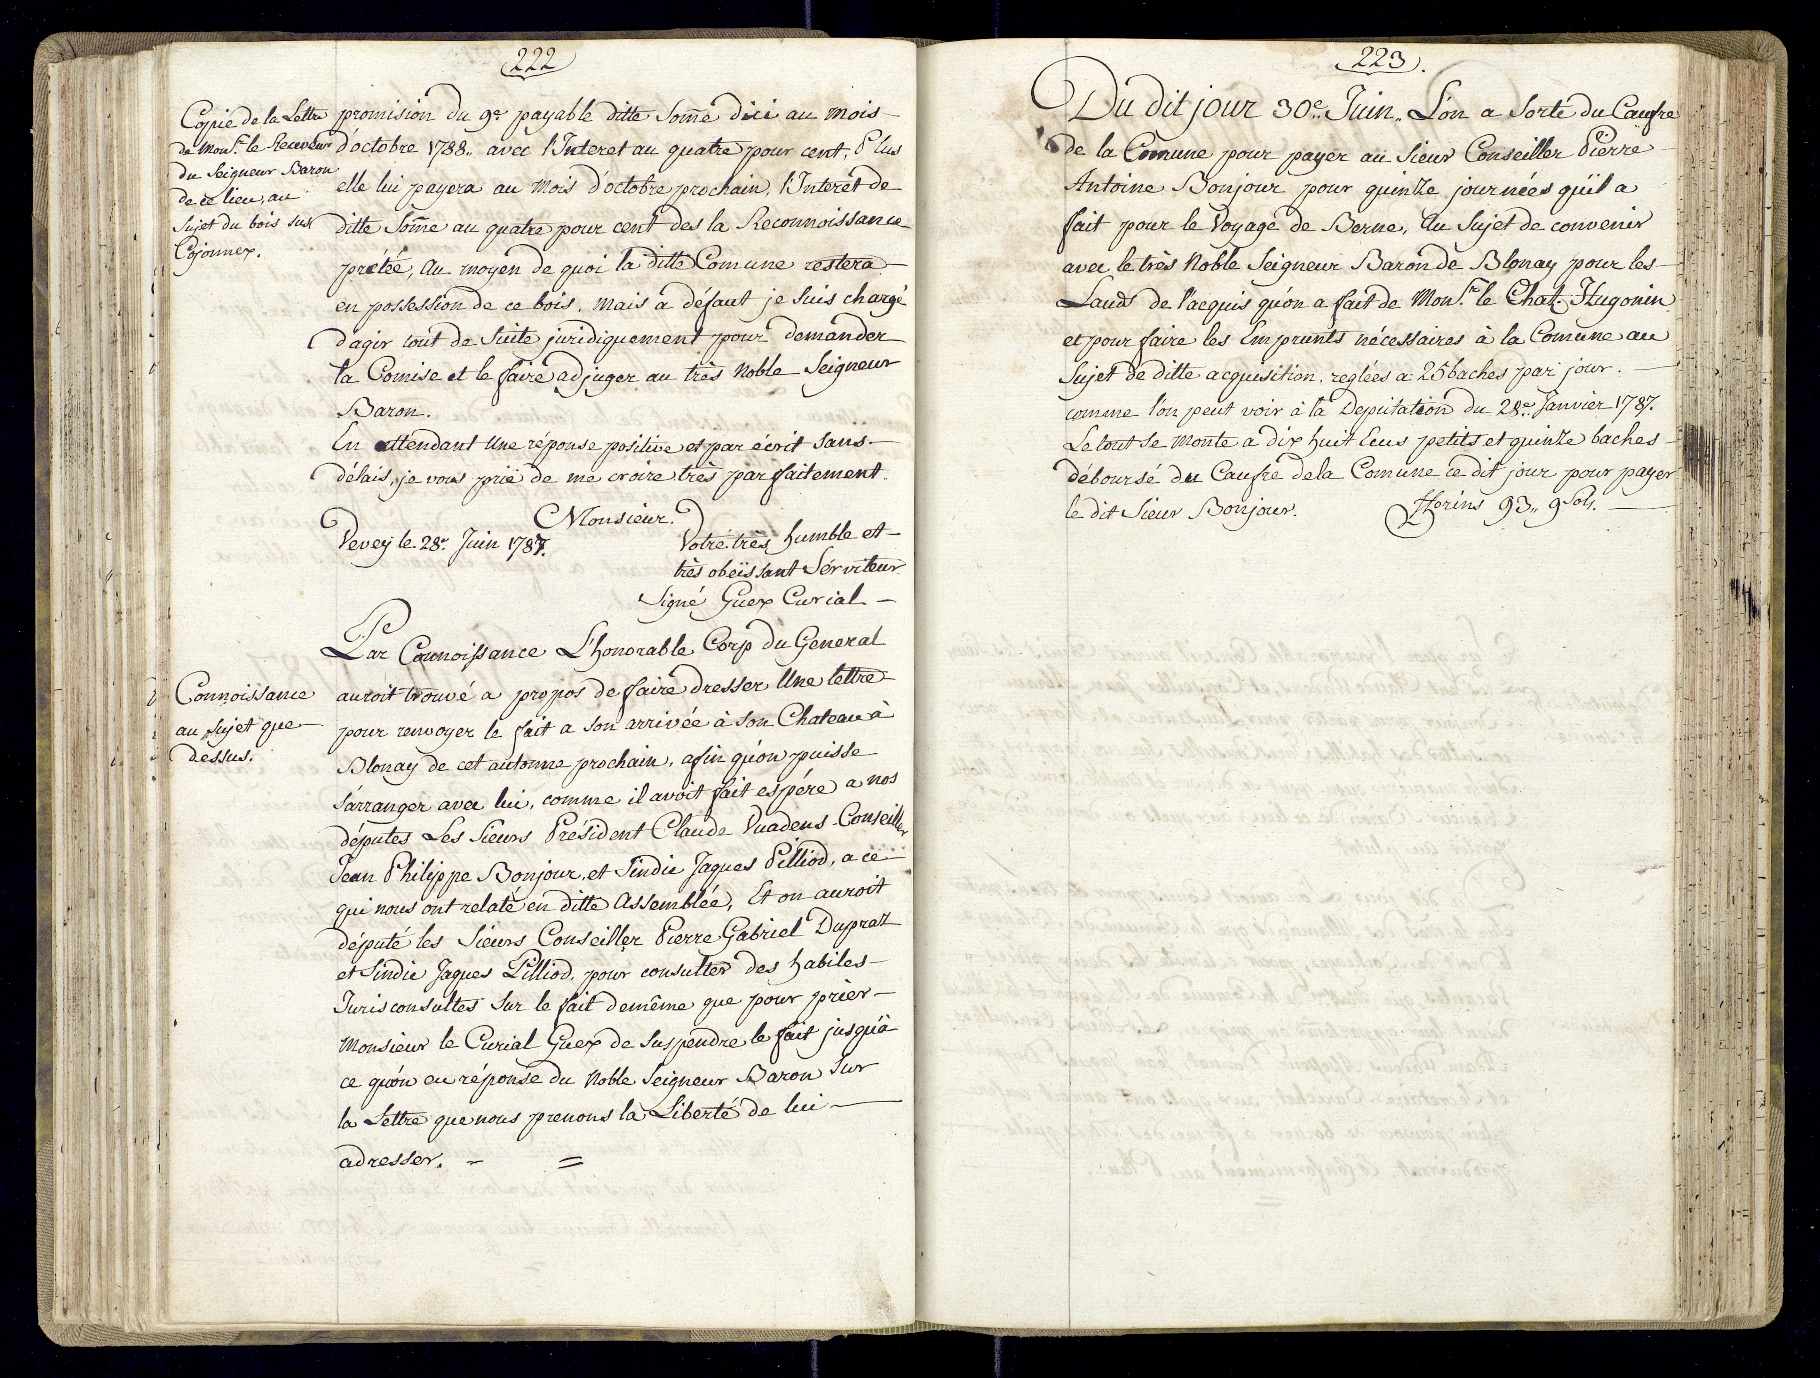 222
Copie de la Lettre
de Mons.r le Receveur
du Seigneur Baron
de ce lieu, au
Sujet du bois sus
Cojonnex.
promision du 9e payable ditte Somē dici au mois
d'octobre 1788,, avec l'Interet au quatre pour cent, Plus
elle lui payera au mois d'octobre prochain, l'Interet de
ditte Somē au quatre pour cent des la Reconnoissance
pretée, Au moyen de quoi la ditte Comune restera
en possession de ce bois, mais a défaut je suis chargé
d'agir tout de Suite juridiquement pour demander
la Comise et le faire adjuger au très Noble Seigneur
Baron.
En attendant Une réponse positive et par écrit sans
délais, je vous prie de me croire très parfaitement.
Monsieur.
Vevey le 28e Juin 1787.
Votre très humble et
très obeïssant Serviteur
Signé Guex Curial
Connoissance
au Sujet que
dessus.
Par Connoissance L'honorable Corp du General
auroit trouvé a propos de faire dresser Une lettre
pour renvoyer le fait a son arrivée à son Chateau à
Blonay de cet automne prochain, afin qu'on puisse
s'arranger avec lui, comme il avoit fait espére a nos
députes Les Sieurs Président Claude Vuadens Conseiller
Jean Philippe Bonjour, et Sindic Jaques Pilliod, a ce
qui nous ont relaté en ditte Assemblée, Et on auroit
député les Sieurs Conseiller Pierre Gabriel Dupraz
et Sindic Jaques Pilliod, pour consulter des habiles
Jurisconsultes sur le fait demême que pour prier
Monsieur le Curial Guex de suspendre le fait jusqu'à
ce qu'on eu réponse du Noble Seigneur Baron sur
la Lettre que nous prenons la Liberté de lui
adresser. - =
223.
Du dit jour 30e Juin,, L'on a Sorte du Caufre
de la Comune pour payer au Sieur Conseiller Pierre
Antoine Bonjour pour quinze journées qu'il a
fait pour le Voyage de Berne, Au Sujet de convenir
avec le très Noble Seigneur Baron de Blonay pour les
Lauds de l'acquis qu'on a fait de Mons.r le Chat. Hugonin
et pour faire les Emprunts nécessaires à la Comune au
Sujet de ditte acquisition, reglées a 25 baches par jour.
comme l'on peut voir à la Deputation du 28e Janvier 1787.
Le tout se monte a dix huit Ecus petits et quinze baches
déboursé du Caufre de la Comune ce dit jour pour payer
le dit Sieur Bonjour. fflorins 93,, 9 sols.